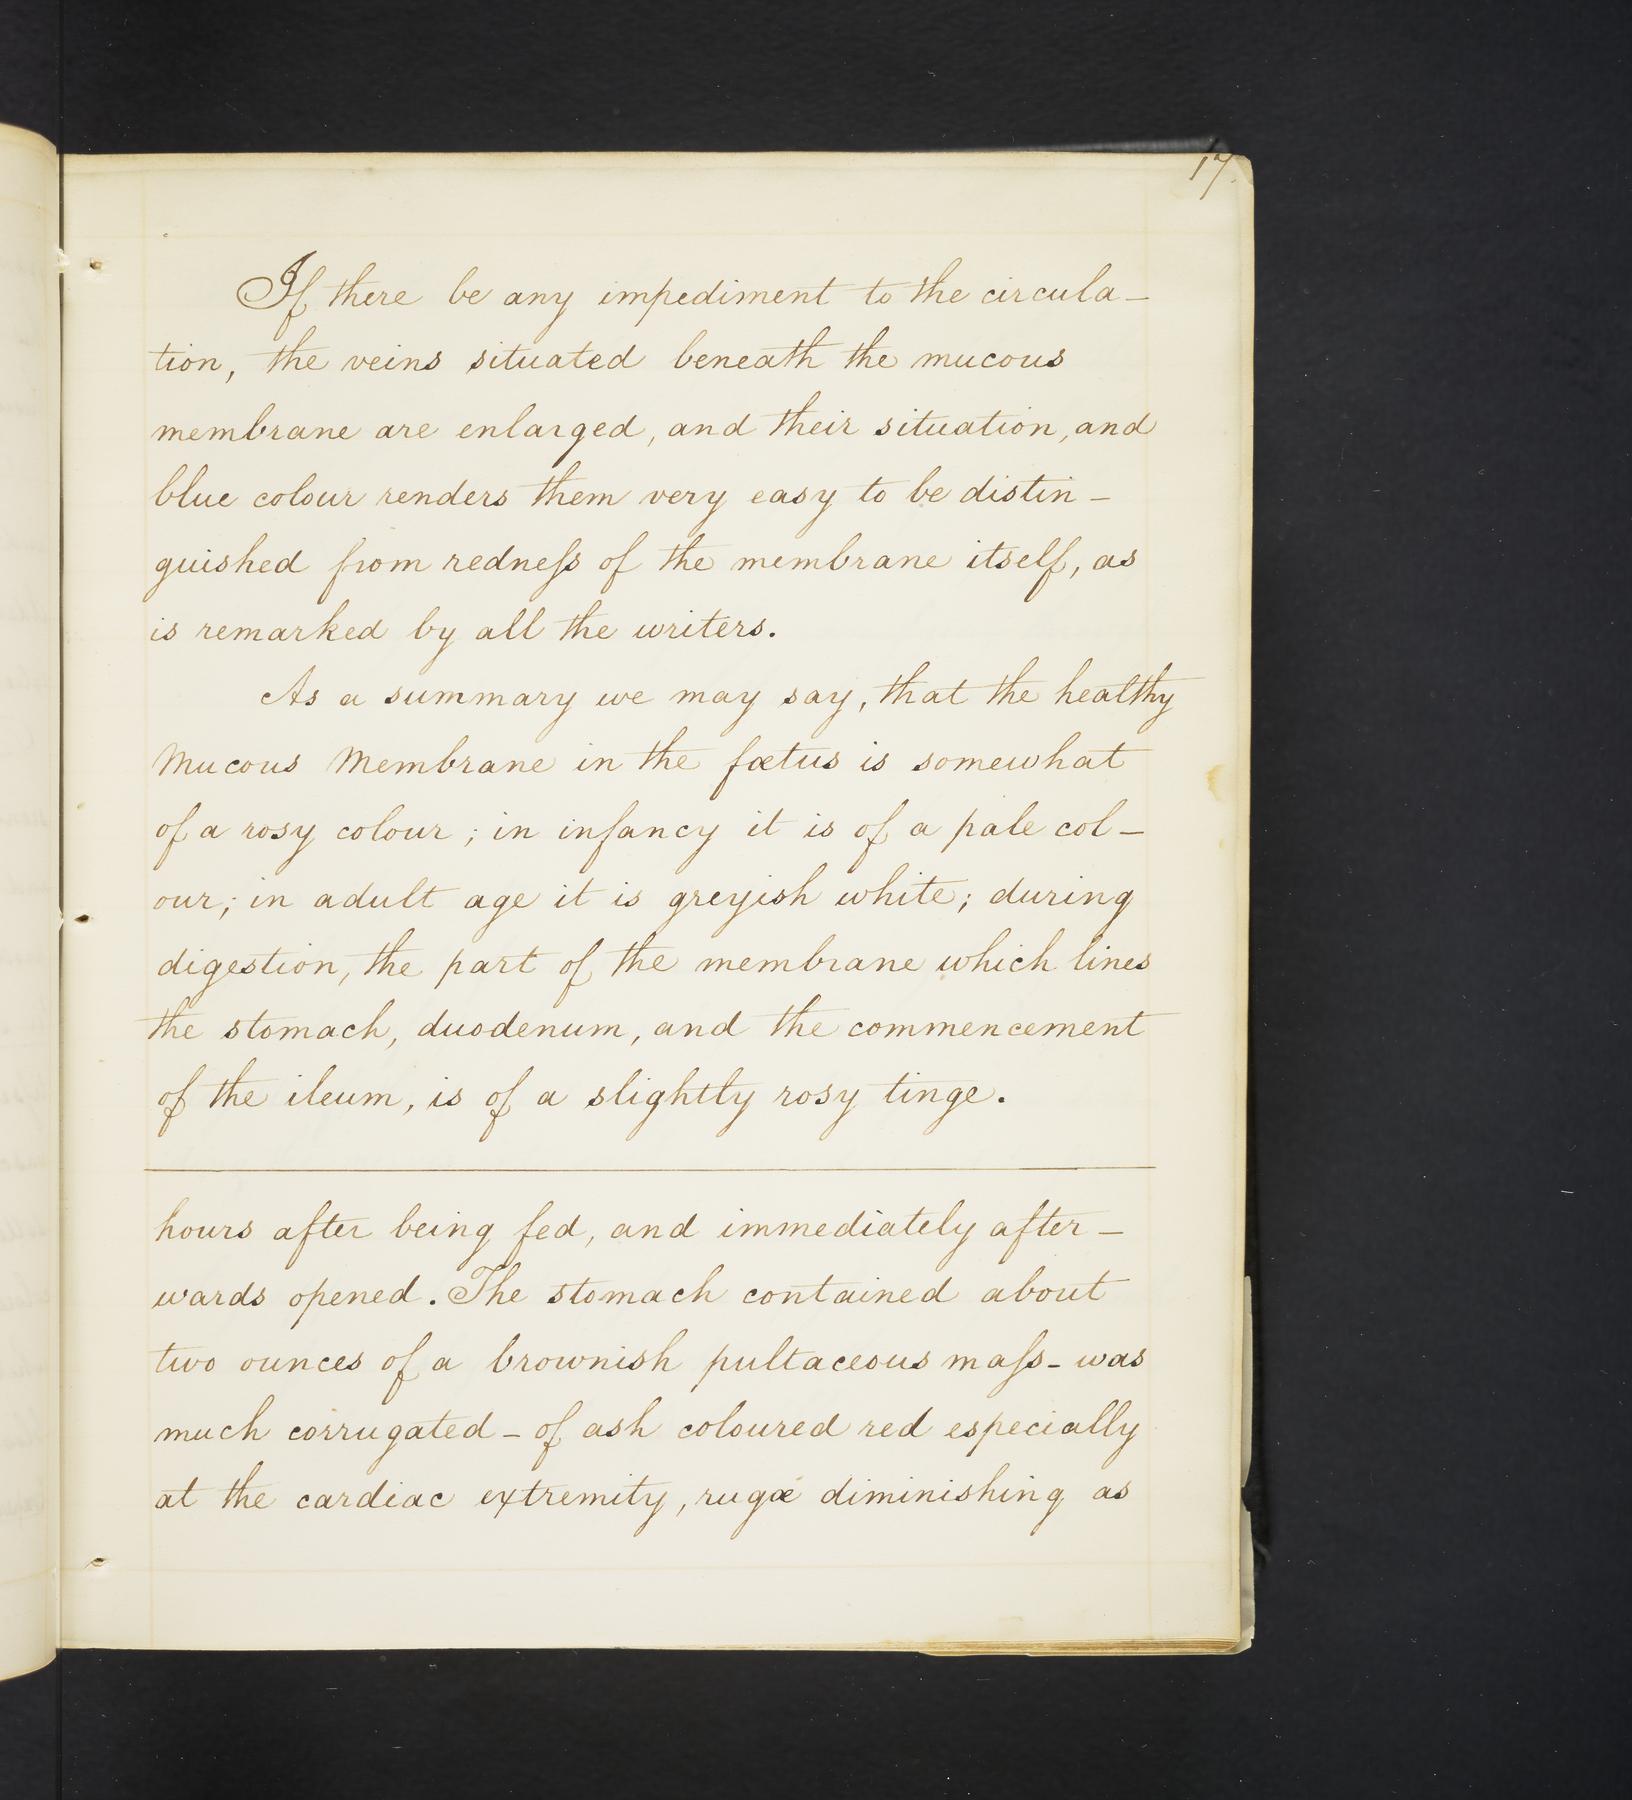 17.
If there be any impediment to the circula-
tion, the veins situated beneath the mucous
membrane are enlarged, and their situation, and
blue colour renders them very easy to be distin-
guished from redneſs of the membrane itself, as
is remarked by all the writers.
As a summary we may say, that the healthy
Mucous Membrane in the fœtus is somewhat
of a rosy colour; in infancy it is of a pale col-
our; in adult age it is greyish white; during
digestion, the part of the membrane which lines
the stomach, duodenum, and the commencement
of the ileum, is of a slightly rosy tinge.
hours after being fed, and immediately after-
wards opened. The stomach contained about
two ounces of a brownish pultaceous maſs - was
much corrugated - of ash coloured red especially
at the cardiac extremity, rugæ diminishing as